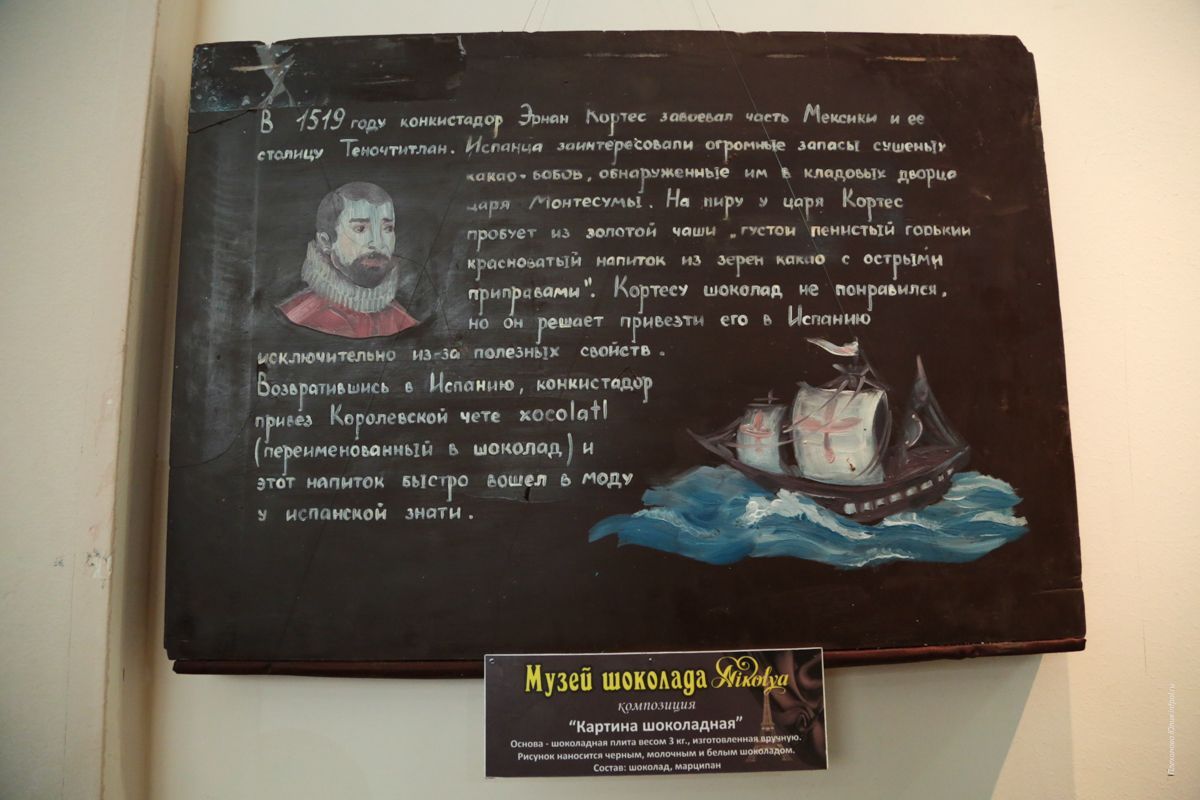 В 1519 году конкистадор Эрнан Кортес завоевал часть Мексики и ее
столицу Теночтитлан. Испанца заинтересовали огромные запасы сушеных
какао-бобов, обнаруженные им в кладовых дворца
царя Монтесумы. На пиру у царя Кортес
пробует из золотой чаши „густой пенистый горький
красноватый напиток из зерен какао с острыми
приправами". Кортесу шоколад не понравился,
но он решает привезти его в Испанию
исключительно из-за полезных свойств.
Возвратившись в Испанию, конкистадор
привез Королевской чете xocolatl
(переименованный в шоколад) и
этот напиток быстро вошел в моду
у испанской знати.
Музей шоколада Nikolya
композиция
“Картина шоколадная”
Основа - шоколадная плита весом 3 кг., изготовленная вручную.
Рисунок наносится черным, молочным и белым шоколадом.
Состав: шоколад, марципан